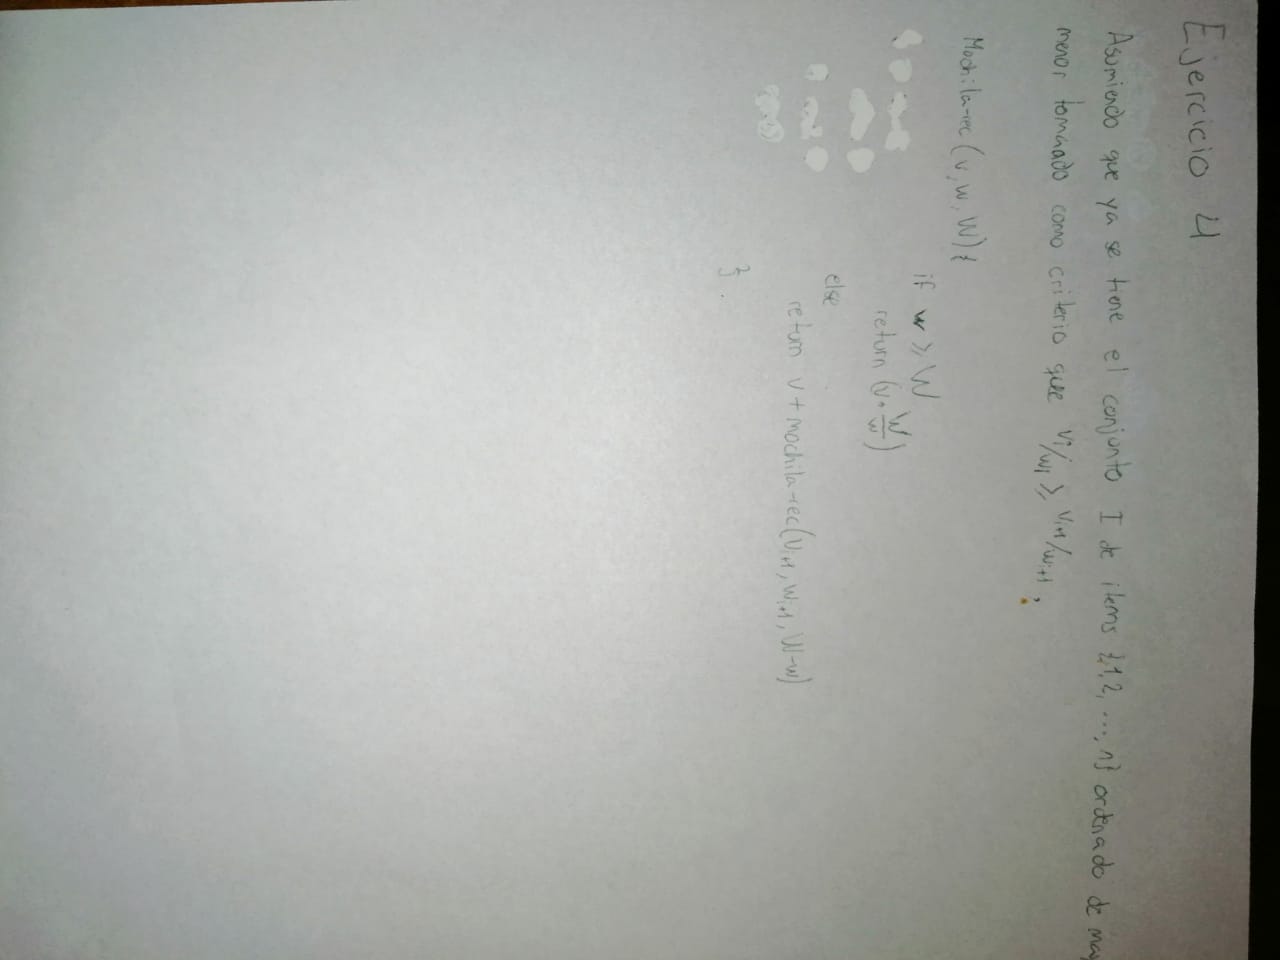 Ejercicio 4
Asumiendo que ya se tiene el conjunto I de items {1,2, ..., n} ordenado de may
menor tomando como criterio que vi/wi ≥ vi+1/wi+1,
Mochila-rec (v, w, W) {
if w ≥ W
return (v * W/w)
else
return v + mochila-rec(vi+1, wi+1, W-w)
}